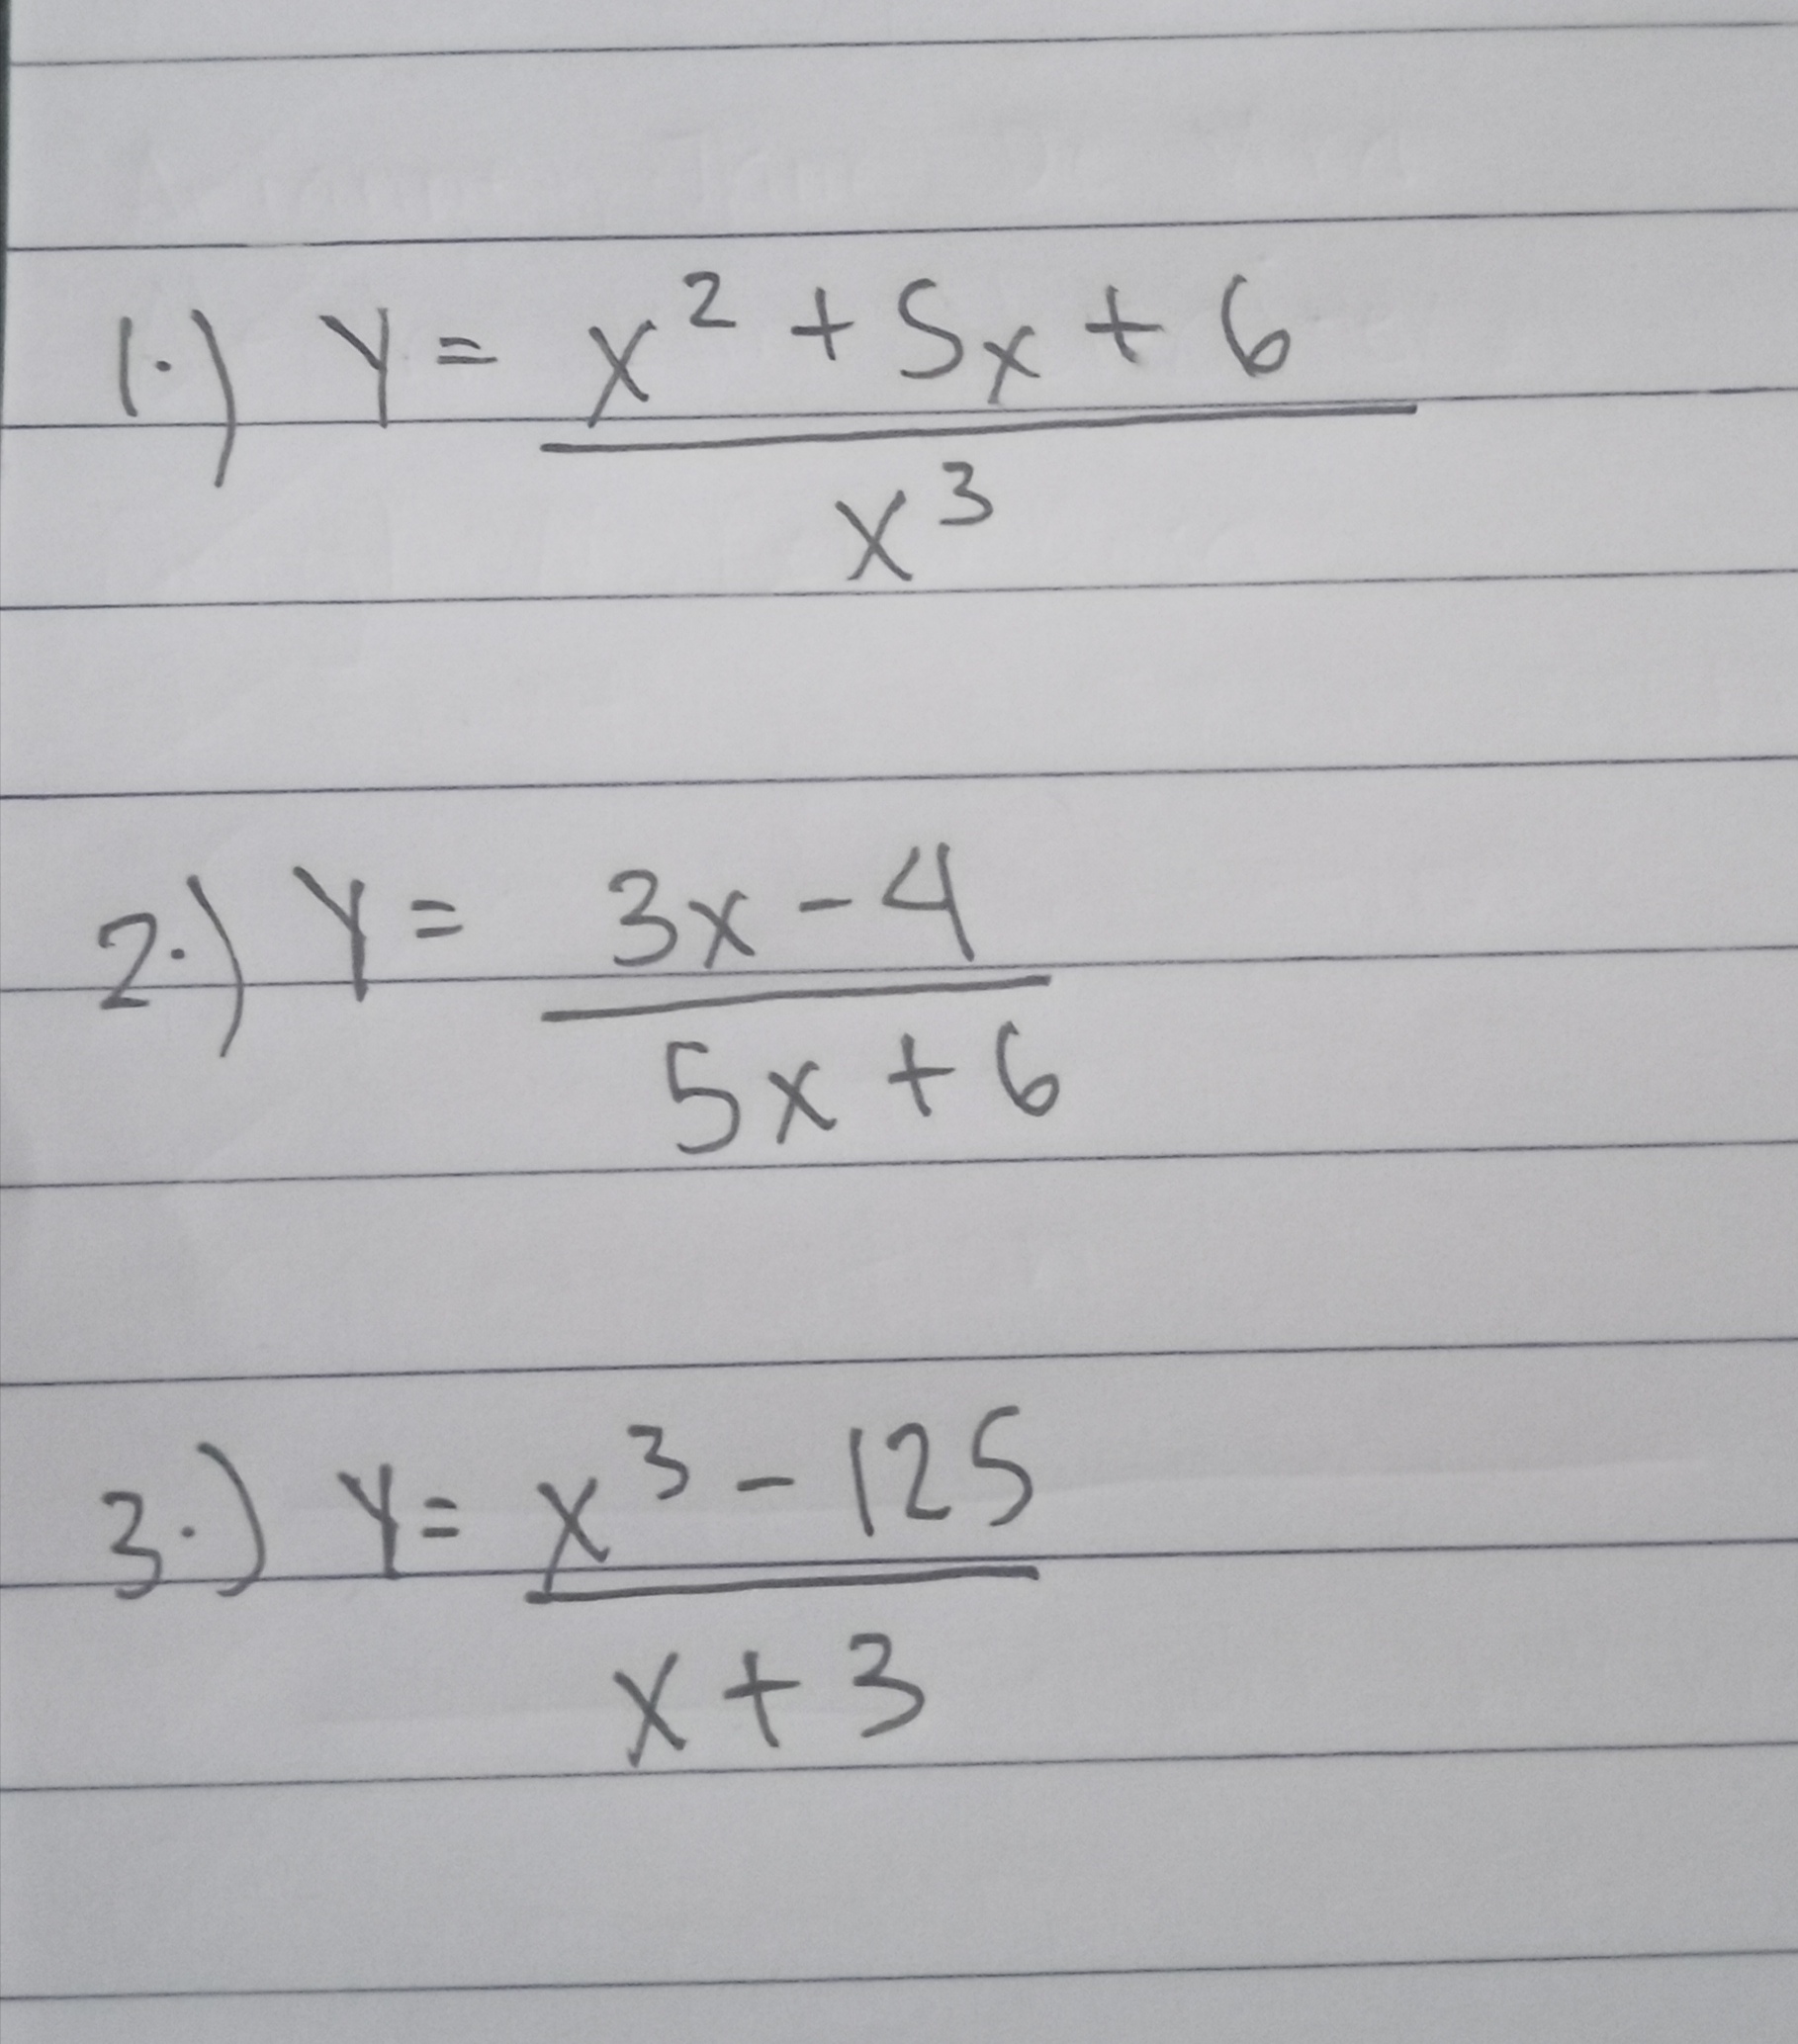 1.) Y = x² + 5x + 6
x³
2.) Y = 3x - 4
5x + 6
3.) Y = x³ - 125
x + 3